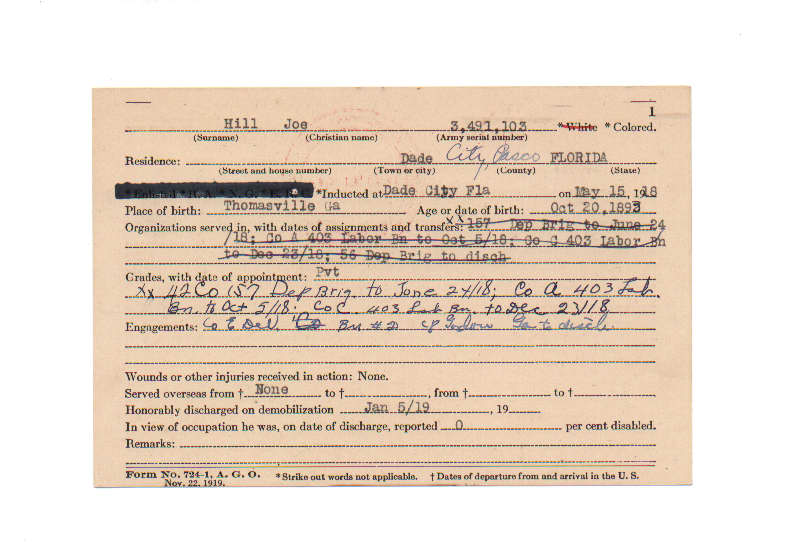 1
Hill Joe 3,491,103 *White *Colored.
(Surname) (Christian name) (Army serial number)
Residence: Dade City, Pasco FLORIDA
(Street and house number) (Town or city) (County) (State)
*Inducted at Dade City Fla on May 15, 1918
Place of birth: Thomasville Ga Age or date of birth: Oct 20,1893
Organizations served in, with dates of assignments and transfers: XX 157 Dep Brig to June 24
/18; Co A 403 Labor Bn to Oct 5/18; Co C 403 Labor Bn
to Dec 23/18; 56 Dep Brig to disch
Grades, with date of appointment: Pvt
Xx 42 Co 157 Dep Brig to June 24/18; Co A 403 Lab.
Bn. to Oct 5/18; Co C 403 Lab Bn. to Dec 23/18
Engagements: Co E Del. Bn #2 Cp Gordon Ga to disch
Wounds or other injuries received in action: None.
Served overseas from † None to †, from † to †
Honorably discharged on demobilization Jan 5/19, 19
In view of occupation he was, on date of discharge, reported 0 per cent disabled.
Remarks:
Form No. 724-1, A. G. O. *Strike out words not applicable. † Dates of departure from and arrival in the U. S.
Nov. 22, 1919.